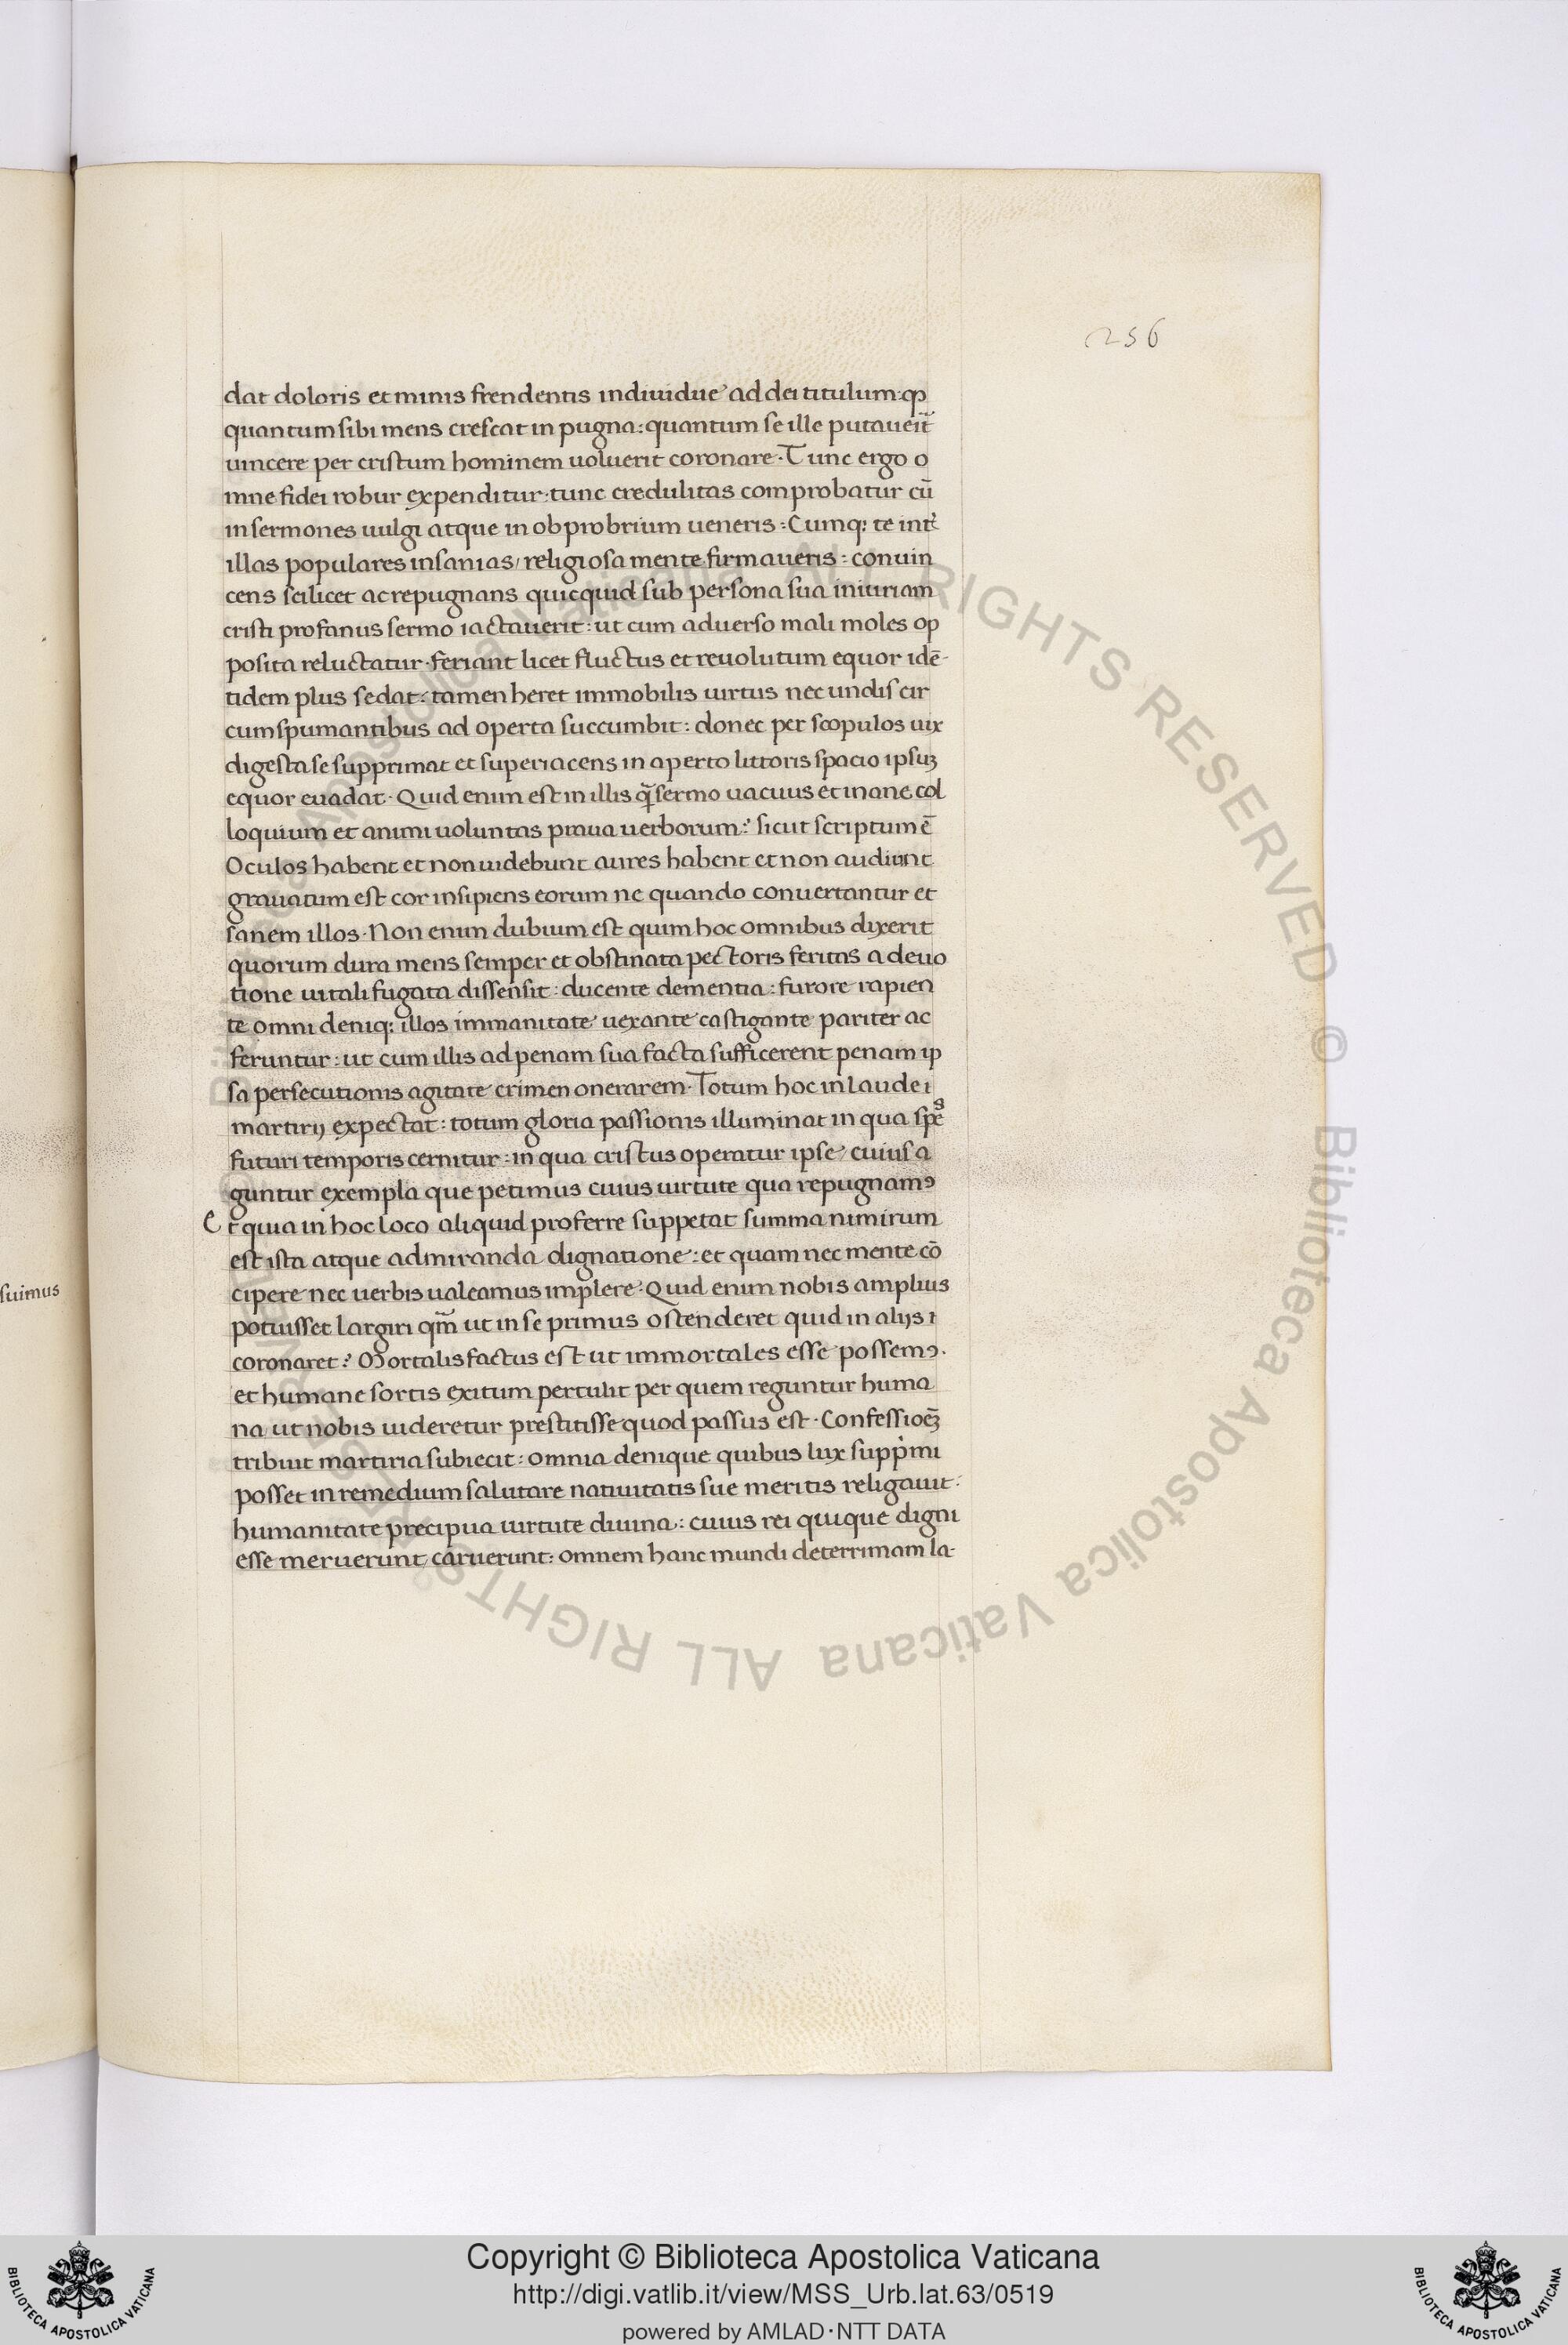 256
dat doloris et minis frendentis indiuidue ad dei titulum: ꝙ
quantum sibi mens crescat in pugna: quantum se ille putaueit̃
uincere per cristum hominem uoluerit coronare. Tunc ergo o
mne fidei robur expenditur: tunc credulitas comprobatur cū
in sermones uulgi atque in obprobrium ueneris: Cumq: te int̉
illas populares insanias, religiosa mente firmaueris: conuin
cens scilicet ac repugnans quicquid sub persona sua iniuriam
cristi profanus sermo iactauerit: ut cum aduerso mali moles op
posita reluctatur. feriant licet fluctus et reuolutum equor idē-
tidem plus sedat: tamen heret immobilis uirtus nec undis cir
cumspumantibus ad operta succumbit: donec per scopulos uix
digesta se supprimat et superiacens in aperto littoris spacio ipsuꝫ
equor euadat. Quid enim est in illis q̃ sermo uacuus et inane col
loquium et animi uoluntas praua uerborum? sicut scriptum ē
Oculos habent et non uidebunt aures habent et non audiunt
grauatum est cor insipiens eorum ne quando conuertantur et
sanem illos. Non enim dubium est quim hoc omnibus dixerit
quorum dura mens semper et obstinata pectoris feritas a deuo
tione uitali fugata dissensit: ducente dementia: furore rapien
te omni deniq: illos immanitate uexante castigante pariter ac
feruntur: ut cum illis ad penam sua facta sufficerent penam ip
sa persecutionis agitate crimen onerarem. Totum hoc in laude i
martirij expectat: totum gloria passionis illuminat in qua spe͛s
futuri temporis cernitur: in qua cristus operatur ipse, cuius a
guntur exempla que petimus cuius uirtute qua repugnamꝰ
Et quia in hoc loco aliquid proferre suppetat summa nimirum
est ista atque admiranda dignatione: et quam nec mente cō
cipere nec uerbis ualeamus implere. Quid enim nobis amplius
potuisset largiri qm̃ ut in se primus ostenderet quid in alijs i
coronaret? Mortalis factus est ut immortales esse possemꝰ.
et humane sortis exitum pertulit per quem reguntur huma
na, ut nobis uideretur prestitisse quod passus est. Confessioēꝫ
tribuit martiria subiecit: omnia denique quibus lux supp̉mi
posset in remedium salutare natiuitatis sue meritis religauit:
humanitate precipua uirtute diuina: cuius rei quique digni
esse meruerunt, caruerunt: omnem hanc mundi deterrimam la-
suimus
© Biblioteca Apostolica Vaticana ALL RIGHTS RESERVED © Biblioteca Apostolica Vaticana ALL RIGHTS RESERVED
Copyright © Biblioteca Apostolica Vaticana
http://digi.vatlib.it/view/MSS_Urb.lat.63/0519
powered by AMLAD·NTT DATA
BIBLIOTECA APOSTOLICA VATICANA
BIBLIOTECA APOSTOLICA VATICANA